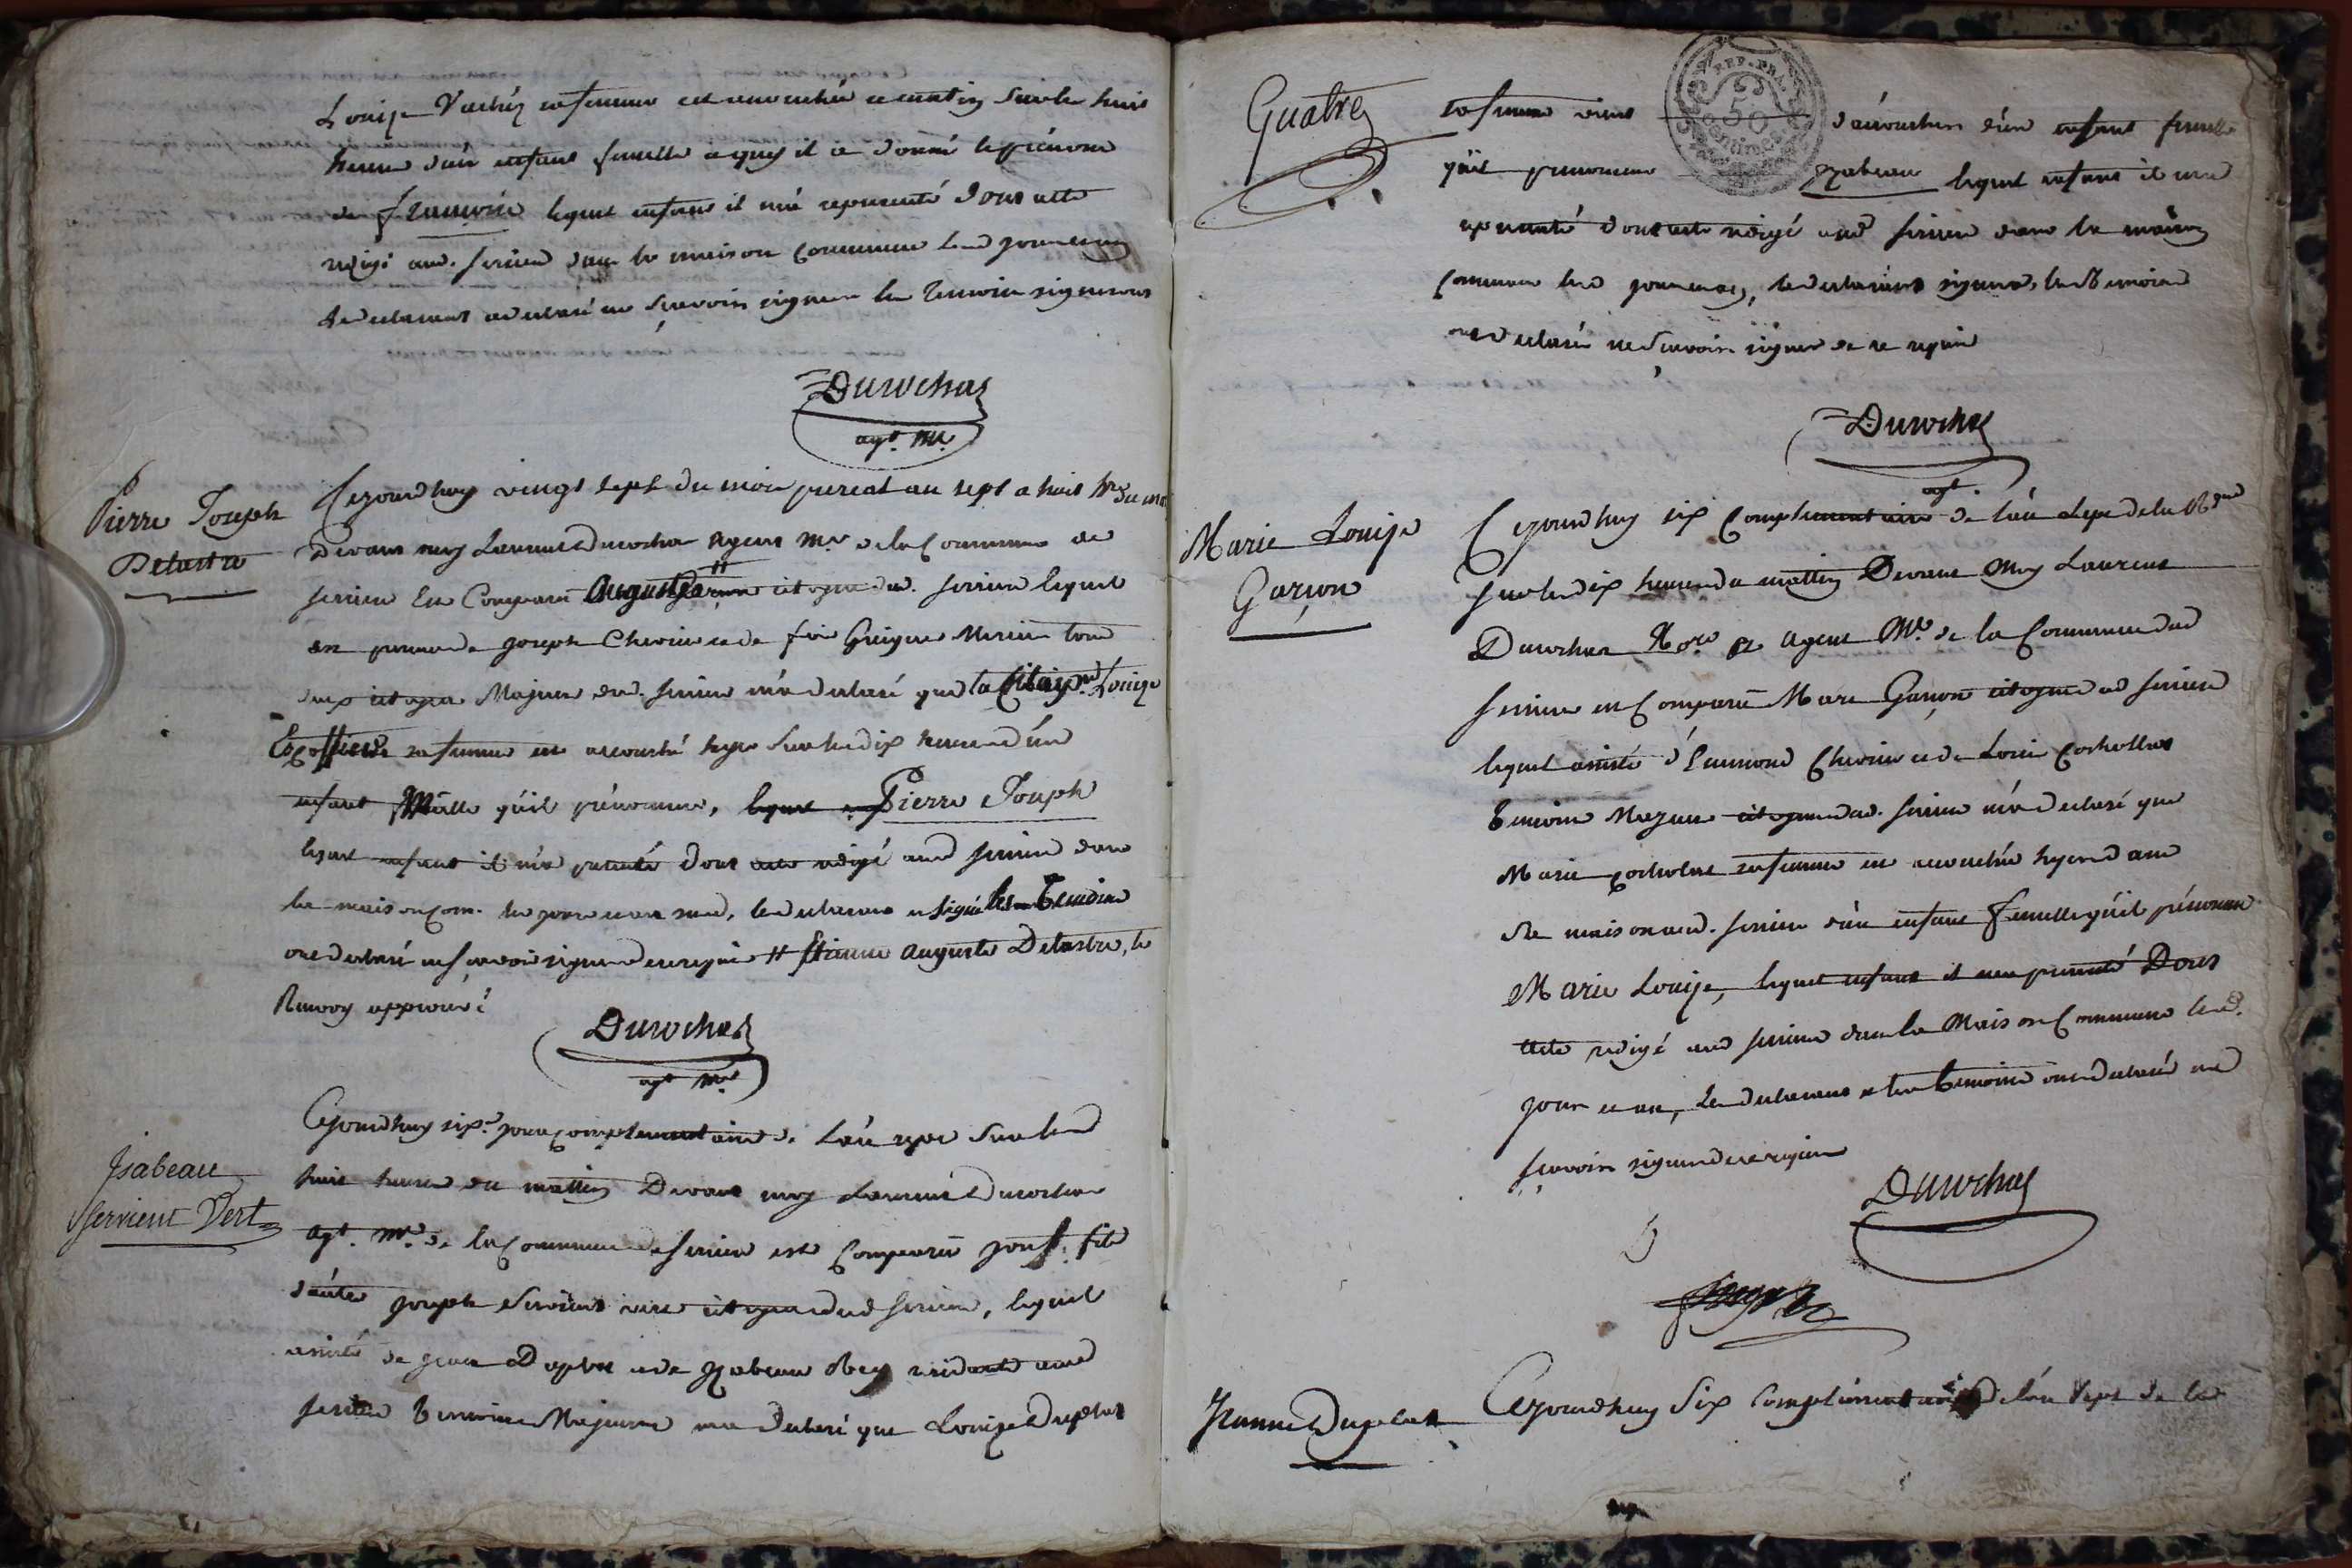 Louise Vachiez sa femme est accouchée ce matin sur les huit
heures d'un enfant femelle a quy il a donné le prénom
de françoise lequel enfant il m'a representé dont acte
redigé aud. servien dans la maison commune led jour et an
le declarant a declaré ne sçavoir signer les temoins signeront
Durochas
agt. mal.
Pierre Joseph
Delastre
Cejourdhuy vingt sept du mois prereal an sept a huit hres du matin
Devant moy Laurent Durochas agent mal de la Commune de
servien Est Comparu auguste citoyen dud. servien lequel
en presence de joseph Chevrier et de
deux citoyens Majeurs dud. servien m'a declaré que la Citoyne Louise
sa femme est accouché hyer sur les dix heures d'un
enfant Malle qu'il prénomme, Pierre Joseph
lequel enfant il m'a presenté dont acte redigé aud servien dans
la maison com. les jour et an susd, le declarant a signé les temoins
ont declaré ne sçavoir signer de ce requis # Etienne auguste Delastre, le
Renvoy approuvé
Durochas
agt mal
Isabeau
Servient Vert
Cejourdhuy six.e jour complementaire de l'an sept sur les
huit heures du mattin Devant moy Laurent Durochas
agt. mal. de la Commune de servien est Comparu jouse. fils
d'autre joseph Servient vert citoyen dud servien, lequel
assisté de Duplat et de Izabeau Rey residants aud
servien temoins Majeurs m'a declaré que Louise Duplat
Quatre
REP. FRA.
50
centimes
sa femme vient d'accoucher d'un enfant femelle
qu'il prenomme Izabeau lequel enfant il m'a
representé dont acte redigé aud servien dans la maison
commune led jour et an, le declarant signera, les temoins
ont declaré ne sçavoir signer de ce requis
Durochas
agt.
Marie Louise
Garçon
Cejourdhuy six complementaire de l'an sept de la Rque
sur les dix heures du mattin Devant moy Laurent
Durochas Nore et agent Mal. de la Commune dud
servien est Comparu Marc Garçon citoyen dud servien
lequel assisté d'Eymond Chevrier et de Louis Cochollat
temoins Majeurs citoyens dud. servien m'a declaré que
Marie Cocholat sa femme est accouchée hyer dans
sa maison aud. servien d'un enfant femelle qu'il prénomme
Marie Louise, lequel enfant il m'a presenté Dont
acte redigé aud servien dans la Maison Commune led.
jour et an, le declarant et les temoins ont declaré ne
sçavoir signer de ce requis
Durochas
Jeanne Duplat
Cejourdhuy Six Complémentaire de l'an Sept de la